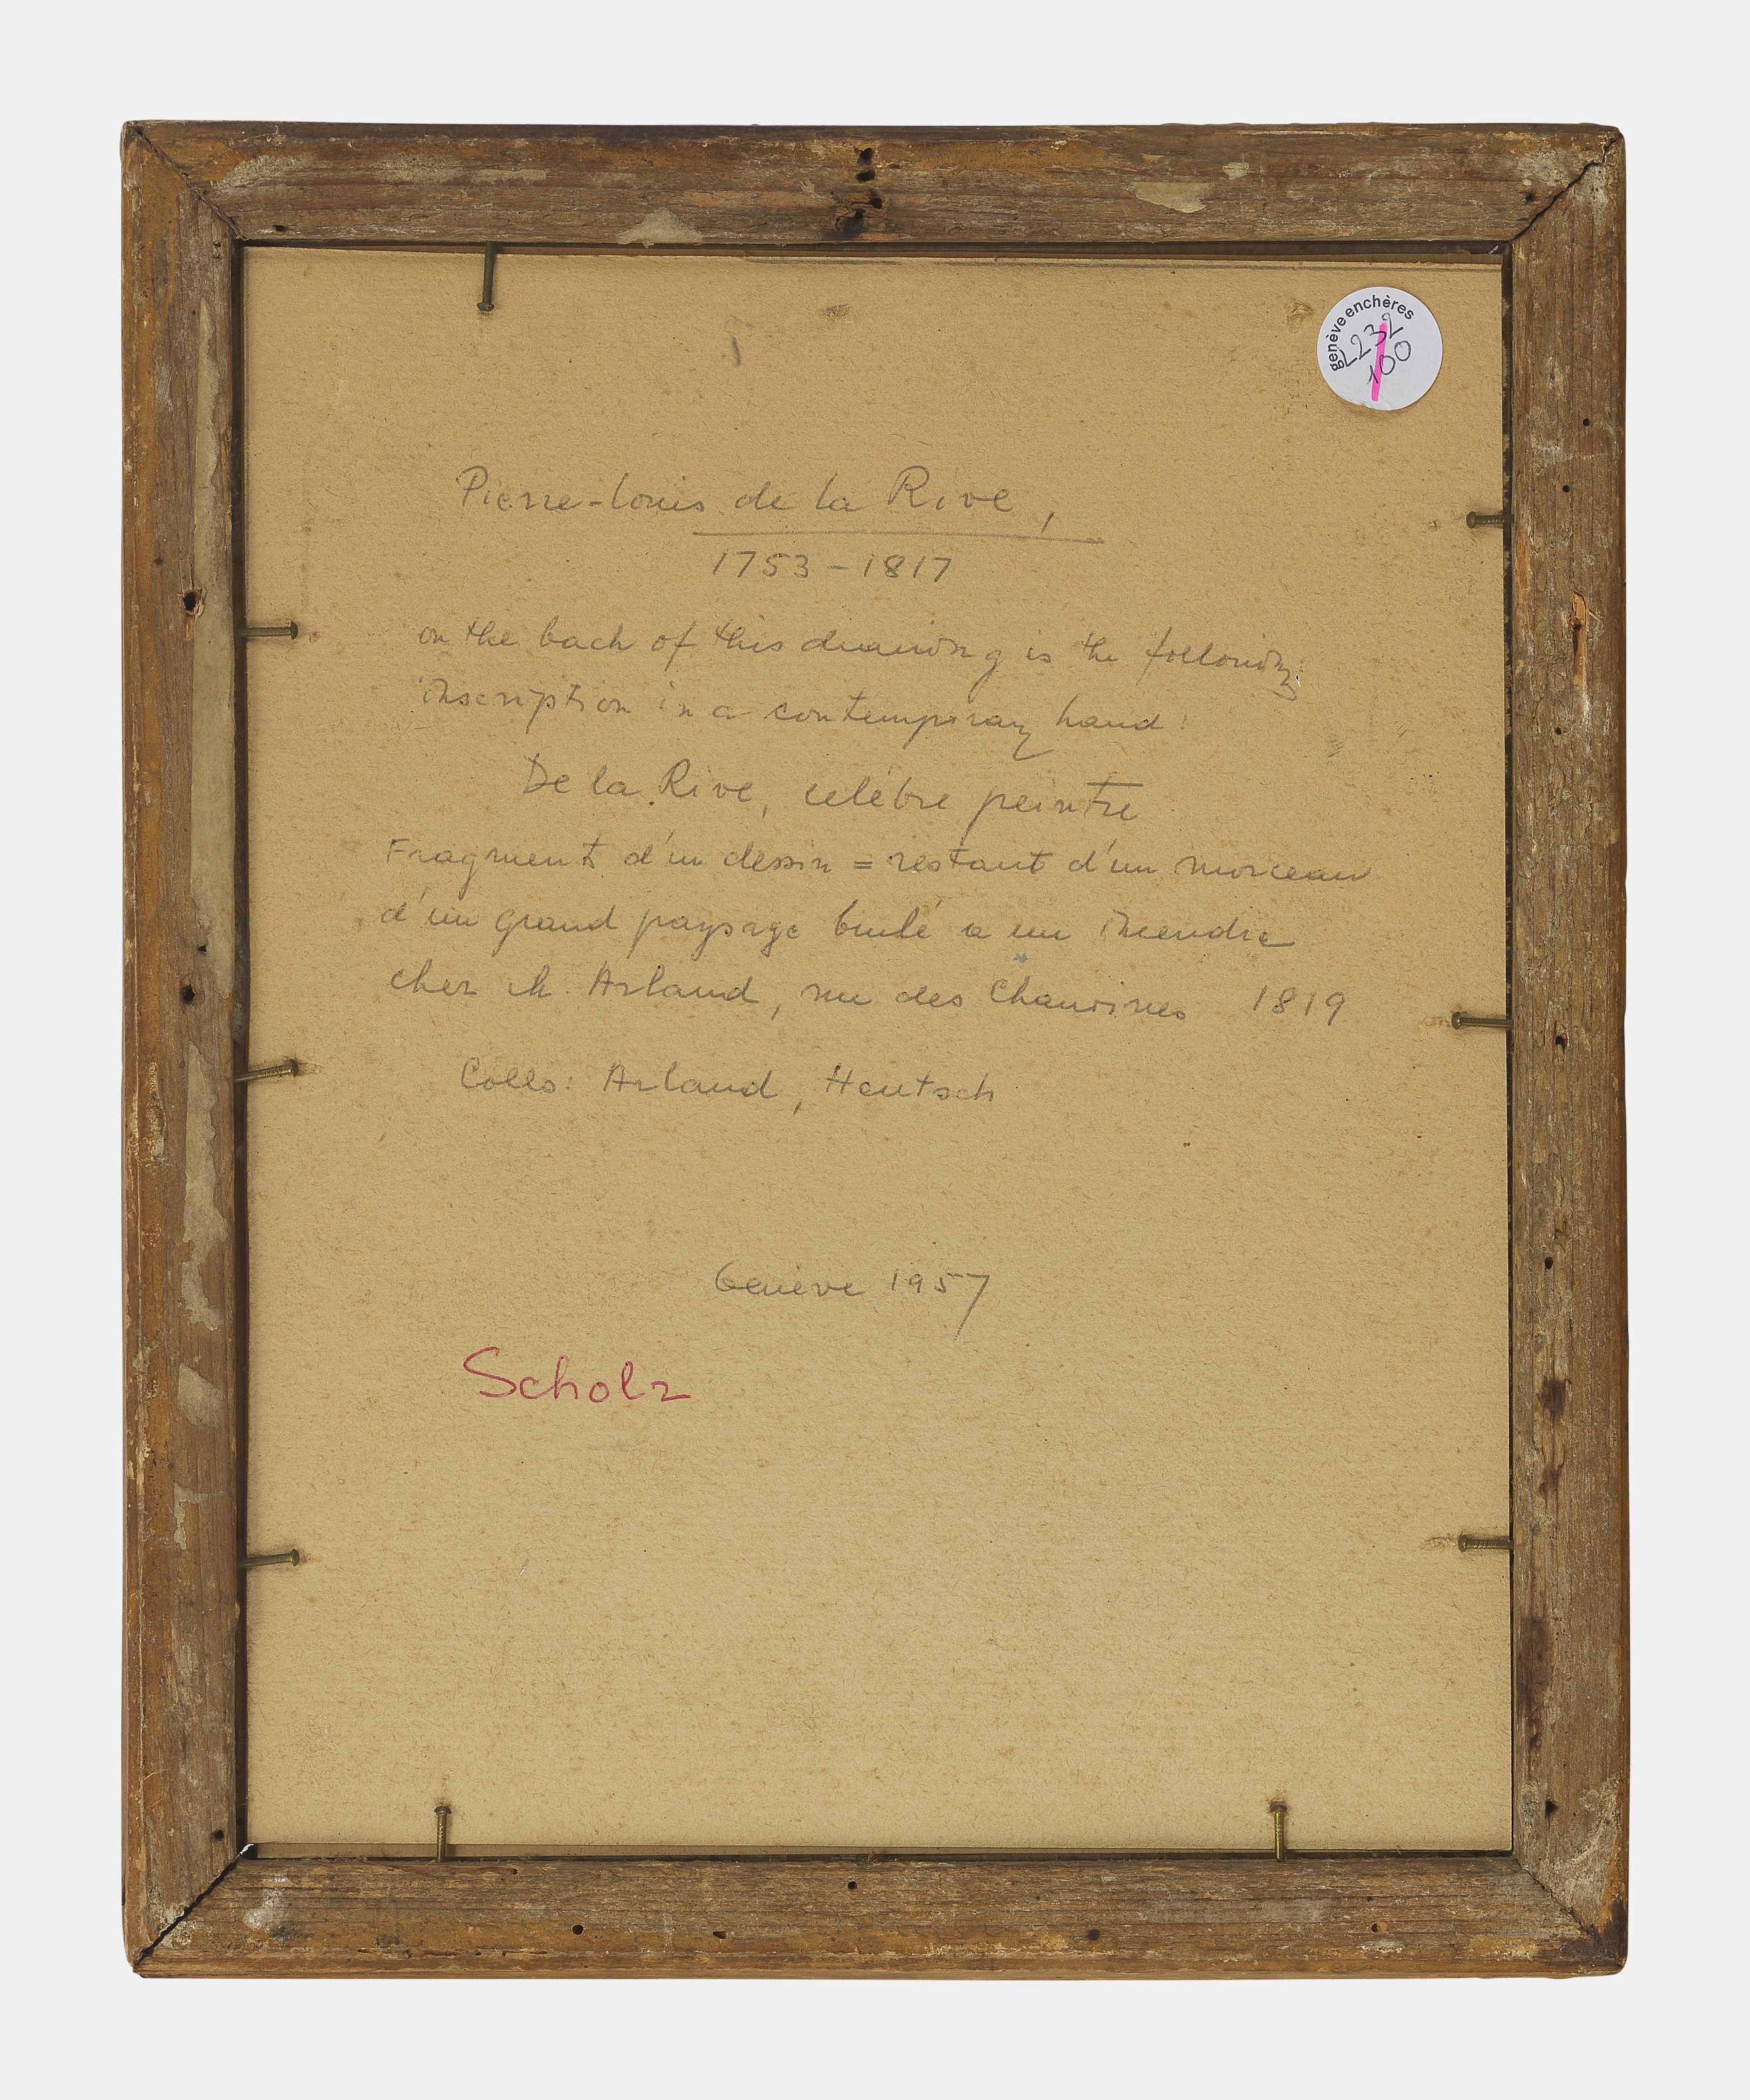 genève enchères
L232
100
Pierre-Louis de la Rive,
1753-1817
on the back of this drawing is the following
inscription in a contemporary hand:
De la Rive, célèbre peintre
Fragment d'un dessin = restant d'un morceau
d'un grand paysage brulé a un incendie
chez M. Arland, rue des Chanoines 1819
Colls: Arland, Hentsch
Genève 1957
Scholz